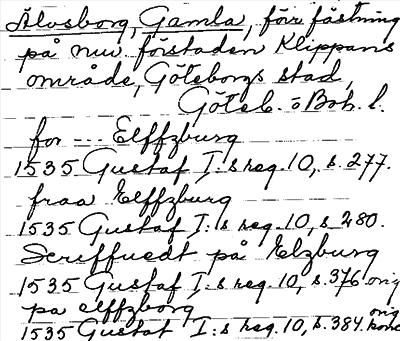 Älvsborg, Gamla, förr fästning
på nuv. förstaden Klippans
område, Göteborgs stad,
Göteb. o Boh. l.
for --- Elffzburg
1535 Gustaf I:s reg. 10, s. 277.
fraa Elffzburg
1535 Gustaf I:s reg. 10, s 280.
Scriffuedt på Elzburg
1535 Gustaf I:s reg. 10, s. 376 orig
pa elffzborg
1535 Gustaf I:s reg. 10, s. 384. orig